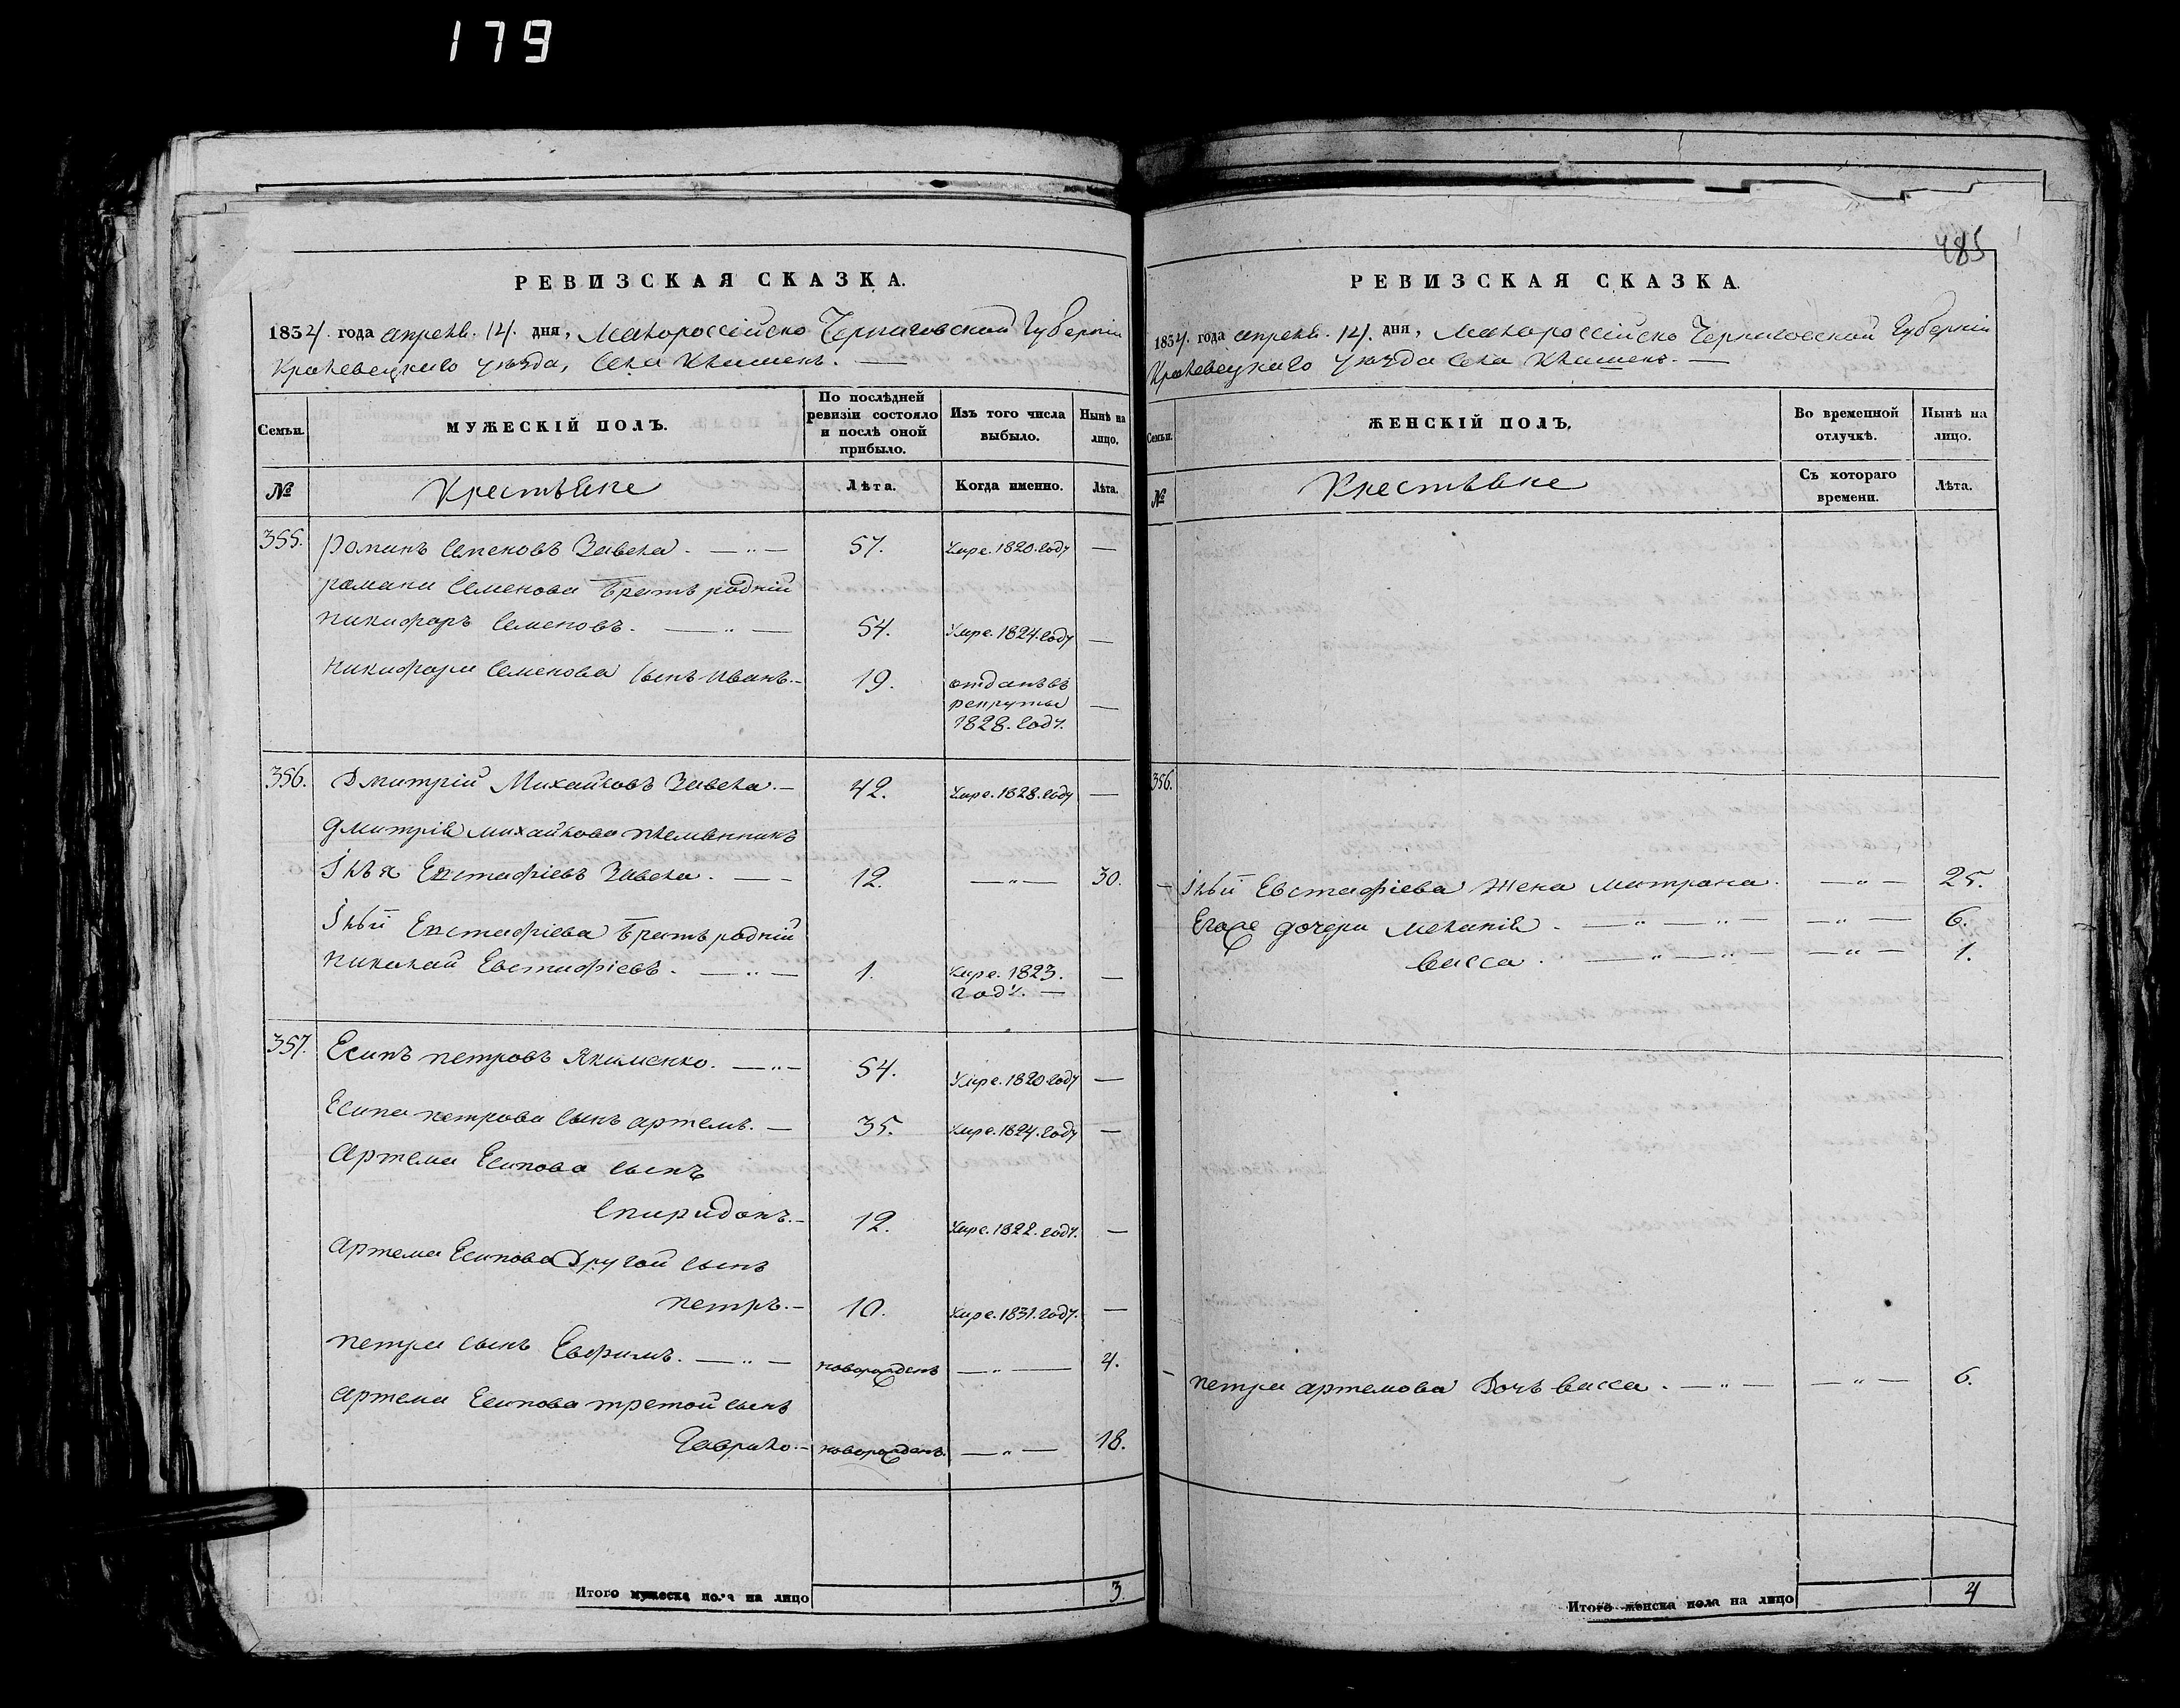 179
РЕВИЗСКАЯ СКАЗКА.
1834. года апреля. 14. дня, Малороссійско Черниговской Губерніи
Кролевецкаго уезда, Села Клишекъ.
Семьи.
МУЖЕСКІЙ ПОЛЪ.
По послѣдней ревизіи состояло и послѣ оной прибыло.
Изъ того числа выбыло.
Нынѣ на лицо.
№
Крестьяне
Лѣта.
Когда именно.
Лѣта.
355. Романъ Семеновъ Завела. — „ — 57. Умре. 1820. году —
романа Семенова братъ родній
никифоръ Семеновъ. — „ — 54. Умре. 1824. году —
никифора Семенова сынъ иванъ. — 19. отданъ въ
рекруты —
1828. году.
356. Дмитрій Михайловъ Завела. — 42. Умре. 1828. году —
дмитрія михайлова племянникъ
Ілья Евстафіевъ Завела. — — 12. — „ — 30.
Ільи Евстафіева братъ родній
николай Евстафіевъ. — „ — 1. Умре. 1823. —
году. —
357. Есипъ петровъ Якименко. — „ — 54. Умре. 1820. году —
Есипа петрова сынъ артемъ. — 35. Умре. 1824. году —
Артема Есипова сынъ
Спиридонъ. — 12. Умре. 1822. году. —
артема Есипова Другой сынъ
петръ. — 10. Умре. 1831. году. —
петра сынъ Евфимъ. — „ — новорожденъ — „ — 4.
артема Есипова третой сынъ
Гаврило. — новорожденъ. — „ — 18.
Итого мужеска пола на лицо 3.
485
РЕВИЗСКАЯ СКАЗКА.
1834. года апреля. 14. дня, Малороссійско Черниговской Губерніи
Кролевецкаго уезда Села Клишекъ. —
Семьи.
ЖЕНСКІЙ ПОЛЪ.
Во временной отлучкѣ.
Нынѣ на лицо.
№
Крестьяне
Съ котораго времени.
Лѣта.
356.
— Ільи Евстафіева жена митрона. — „ — 25.
Егоже дочери меланія. — „ — „ — — „ — 6.
васса. — „ — „ — — „ — 1.
— петра артемова Дочь васса. — „ — — „ — 6.
Итого женска пола на лицо 4